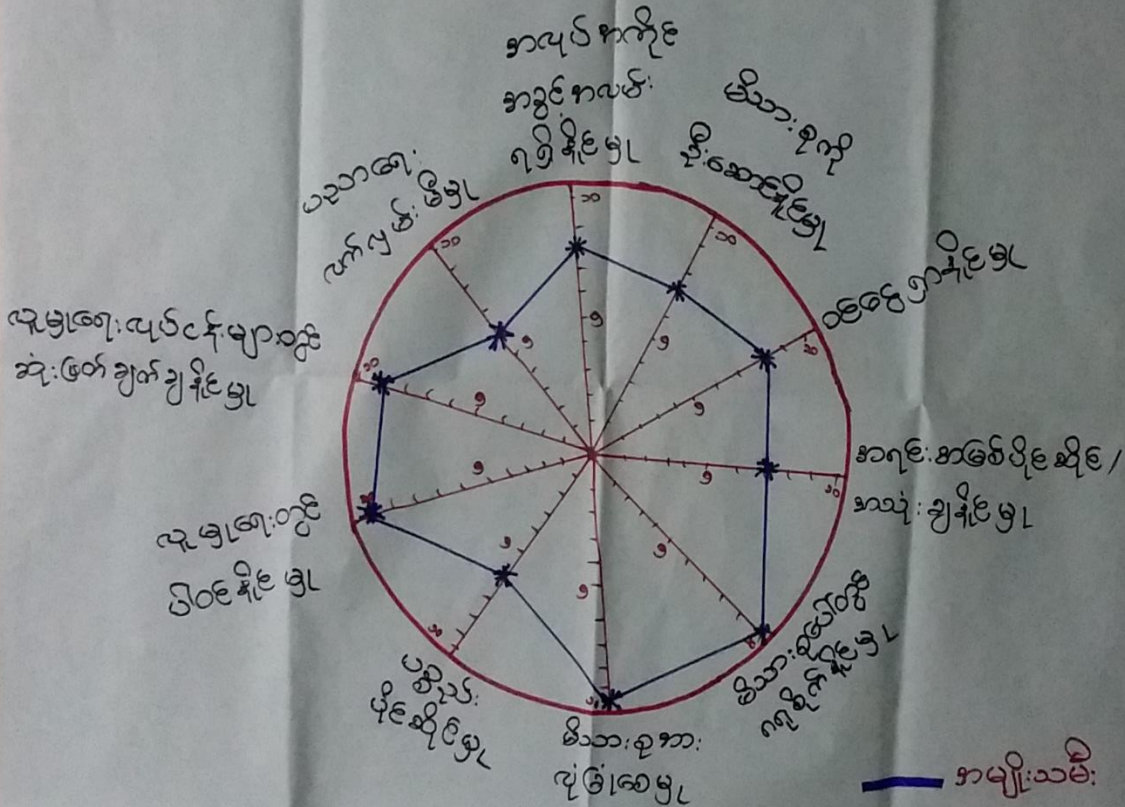 အလုပ်အကိုင်
အခွင့်အလမ်း
ရရှိနိုင်မှု
မိသားစုကို
ဦးဆောင်နိုင်မှု
ဝင်ငွေရှာနိုင်မှု
အရင်းအမြစ်ပိုင်ဆိုင်/
အသုံးချနိုင်မှု
မိသားစုပေါ်တွင်
ဂရုစိုက်နိုင်မှု
မိသားစုအား
လုံခြုံစေမှု
ပစ္စည်း
ပိုင်ဆိုင်မှု
လူမှုရေးတွင်
ပါဝင်နိုင်မှု
လူမှုရေးလုပ်ငန်းများတွင်
ဆုံးဖြတ်ချက်ချနိုင်မှု
ပညာရေး
လက်လှမ်းမီမှု
၁၀
၁၀
၁၀
၁၀
၁၀
၁၀
၁၀
၅
၅
၅
၅
၅
၅
၅
၅
၅
၅
အမျိုးသမီး